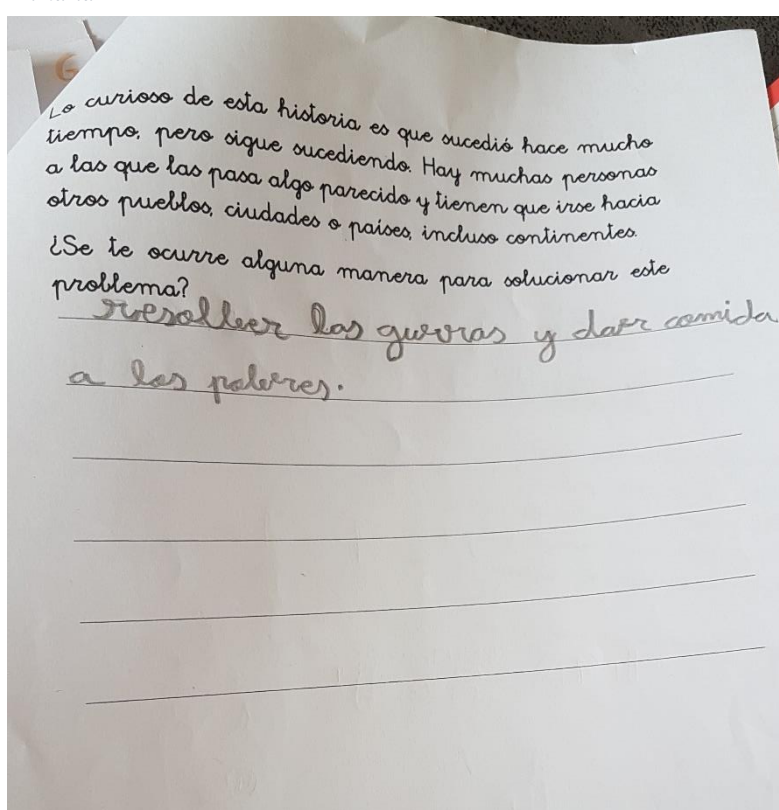 Lo curioso de esta historia es que sucedió hace mucho
tiempo, pero sigue sucediendo. Hay muchas personas
a las que las pasa algo parecido y tienen que irse hacia
otros pueblos, ciudades o países, incluso continentes.
¿Se te ocurre alguna manera para solucionar este
problema?
resolber las guerras y dar comida
a los pobres.